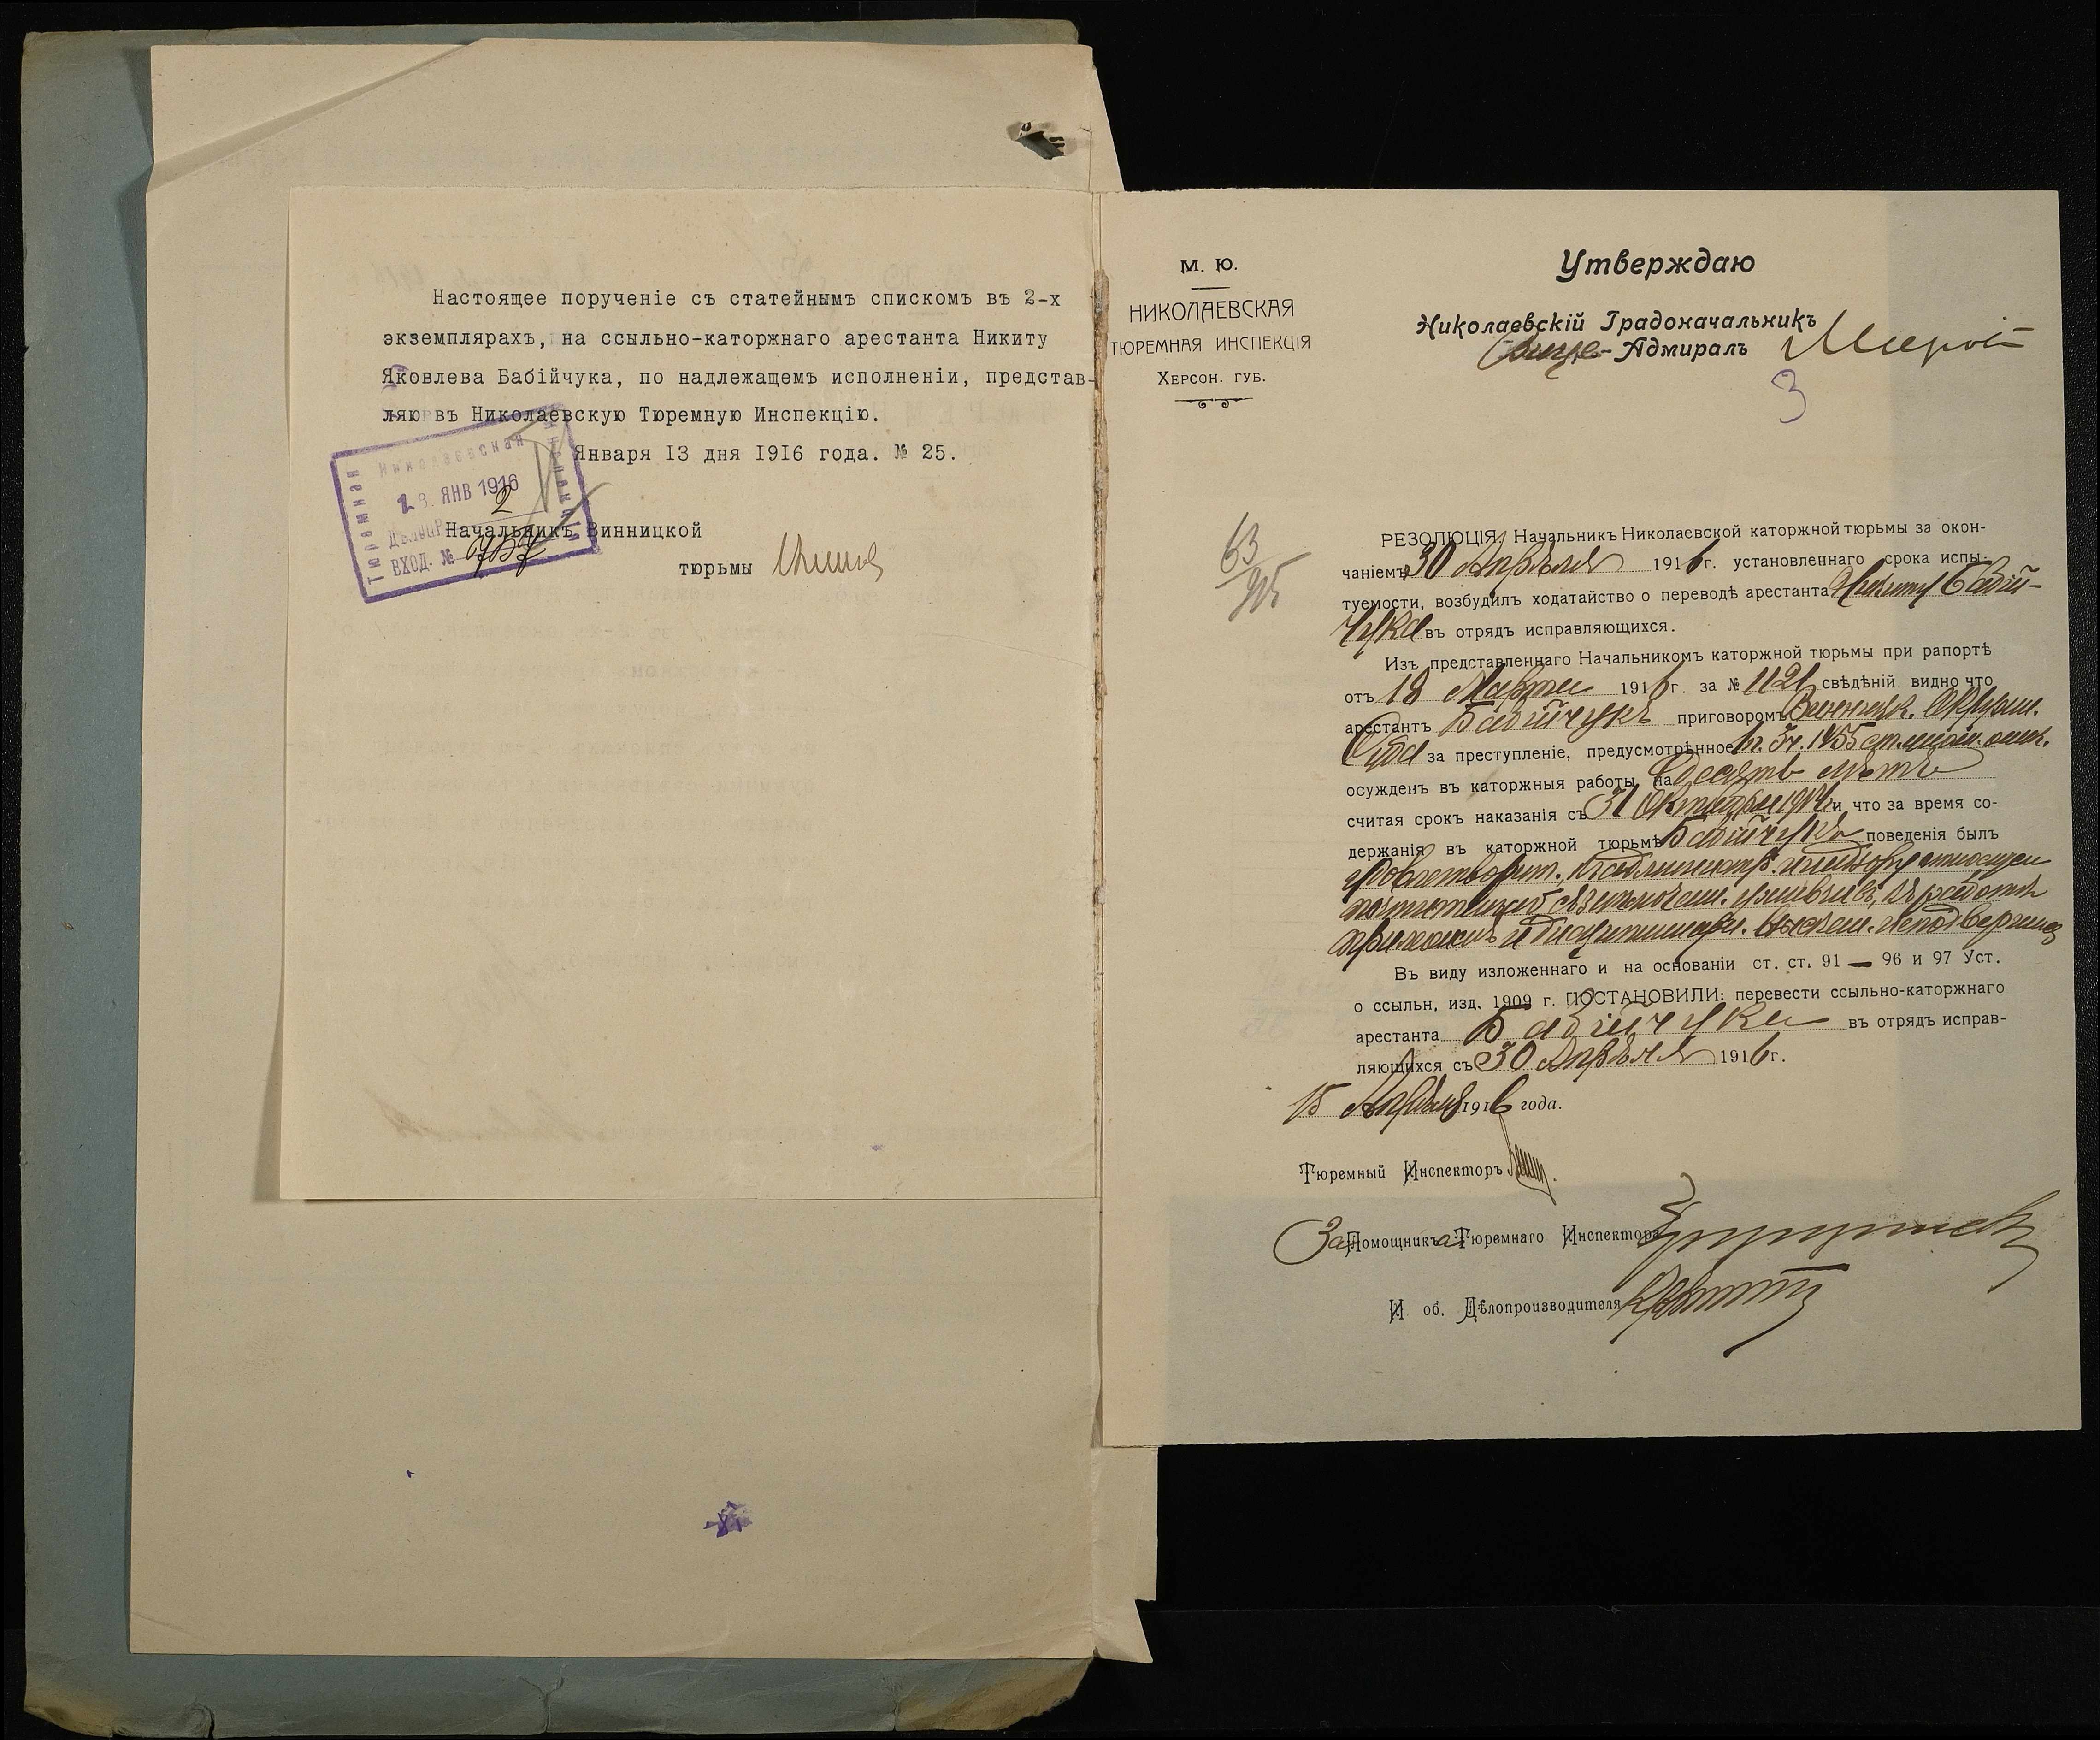 Настоящее порученіе съ статейнымъ спискомъ въ 2-х
экземплярахъ, на ссыльно-каторжнаго арестанта Никиту
Яковлева Бабійчука, по надлежащемъ исполненіи, представ-
ляю въ Николаевскую Тюремную Инспекцію.
Января 13 дня 1916 года. № 25.
Николаевская
Тюремная
ЯНВ 1916
2
Начальникъ Винницкой
ВХОД. № 757
тюрьмы
М. Ю.
НИКОЛАЕВСКАЯ
ТЮРЕМНАЯ ИНСПЕКЦІЯ
Херсон. губ.
Утверждаю
Николаевскій Градоначальникъ
Вице-Адмиралъ
3
63
РЕЗОЛЮЦІЯ: Начальникъ Николаевской каторжной тюрьмы за окон-
чаніемъ 30 Апрѣля 1916 г. установленнаго срока испы-
туемости, возбудилъ ходатайство о переводѣ арестанта Никиты Бабій-
чука въ отрядъ исправляющихся.
Изъ представленнаго Начальникомъ каторжной тюрьмы при рапортѣ
отъ 18 Марта 1916 г. за № 1121 свѣдѣній видно что
арестантъ Бабійчукъ приговоромъ Винницк. Окружн.
Суда за преступленіе, предусмотрѣнное 1 п. 3 ч. 1455 ст. улож. о нак.
осужденъ въ каторжныя работы на Десять лѣтъ
считая срокъ наказанія съ 31 Октября 1914 и что за время со-
держанія въ каторжной тюрьмѣ Бабійчукъ поведенія былъ
удовлетворит., къ администр. и надзору относился
почтительно, съ заключен. уживчивъ, къ работѣ
прилеженъ и дисциплинарн. взыскан. не подвергался
Въ виду изложеннаго и на основаніи ст. ст. 91 — 96 и 97 Уст.
о ссыльн, изд. 1909 г. ПОСТАНОВИЛИ: перевести ссыльно-каторжнаго
арестанта Бабійчука въ отрядъ исправ-
ляющихся съ 30 Апрѣля 1916 г.
15 Апрѣля 1916 года.
Тюремный Инспекторъ
За Помощника Тюремнаго Инспектора
И об. Дѣлопроизводителя